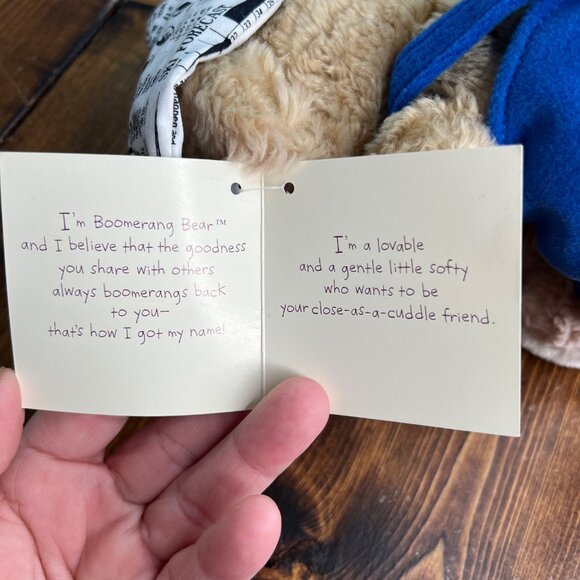 FORECAST
I'm Boomerang Bear™
and I believe that the goodness
you share with others
always boomerangs back
to you—
that's how I got my name!
I'm a lovable
and a gentle little softy
who wants to be
your close-as-a-cuddle friend.